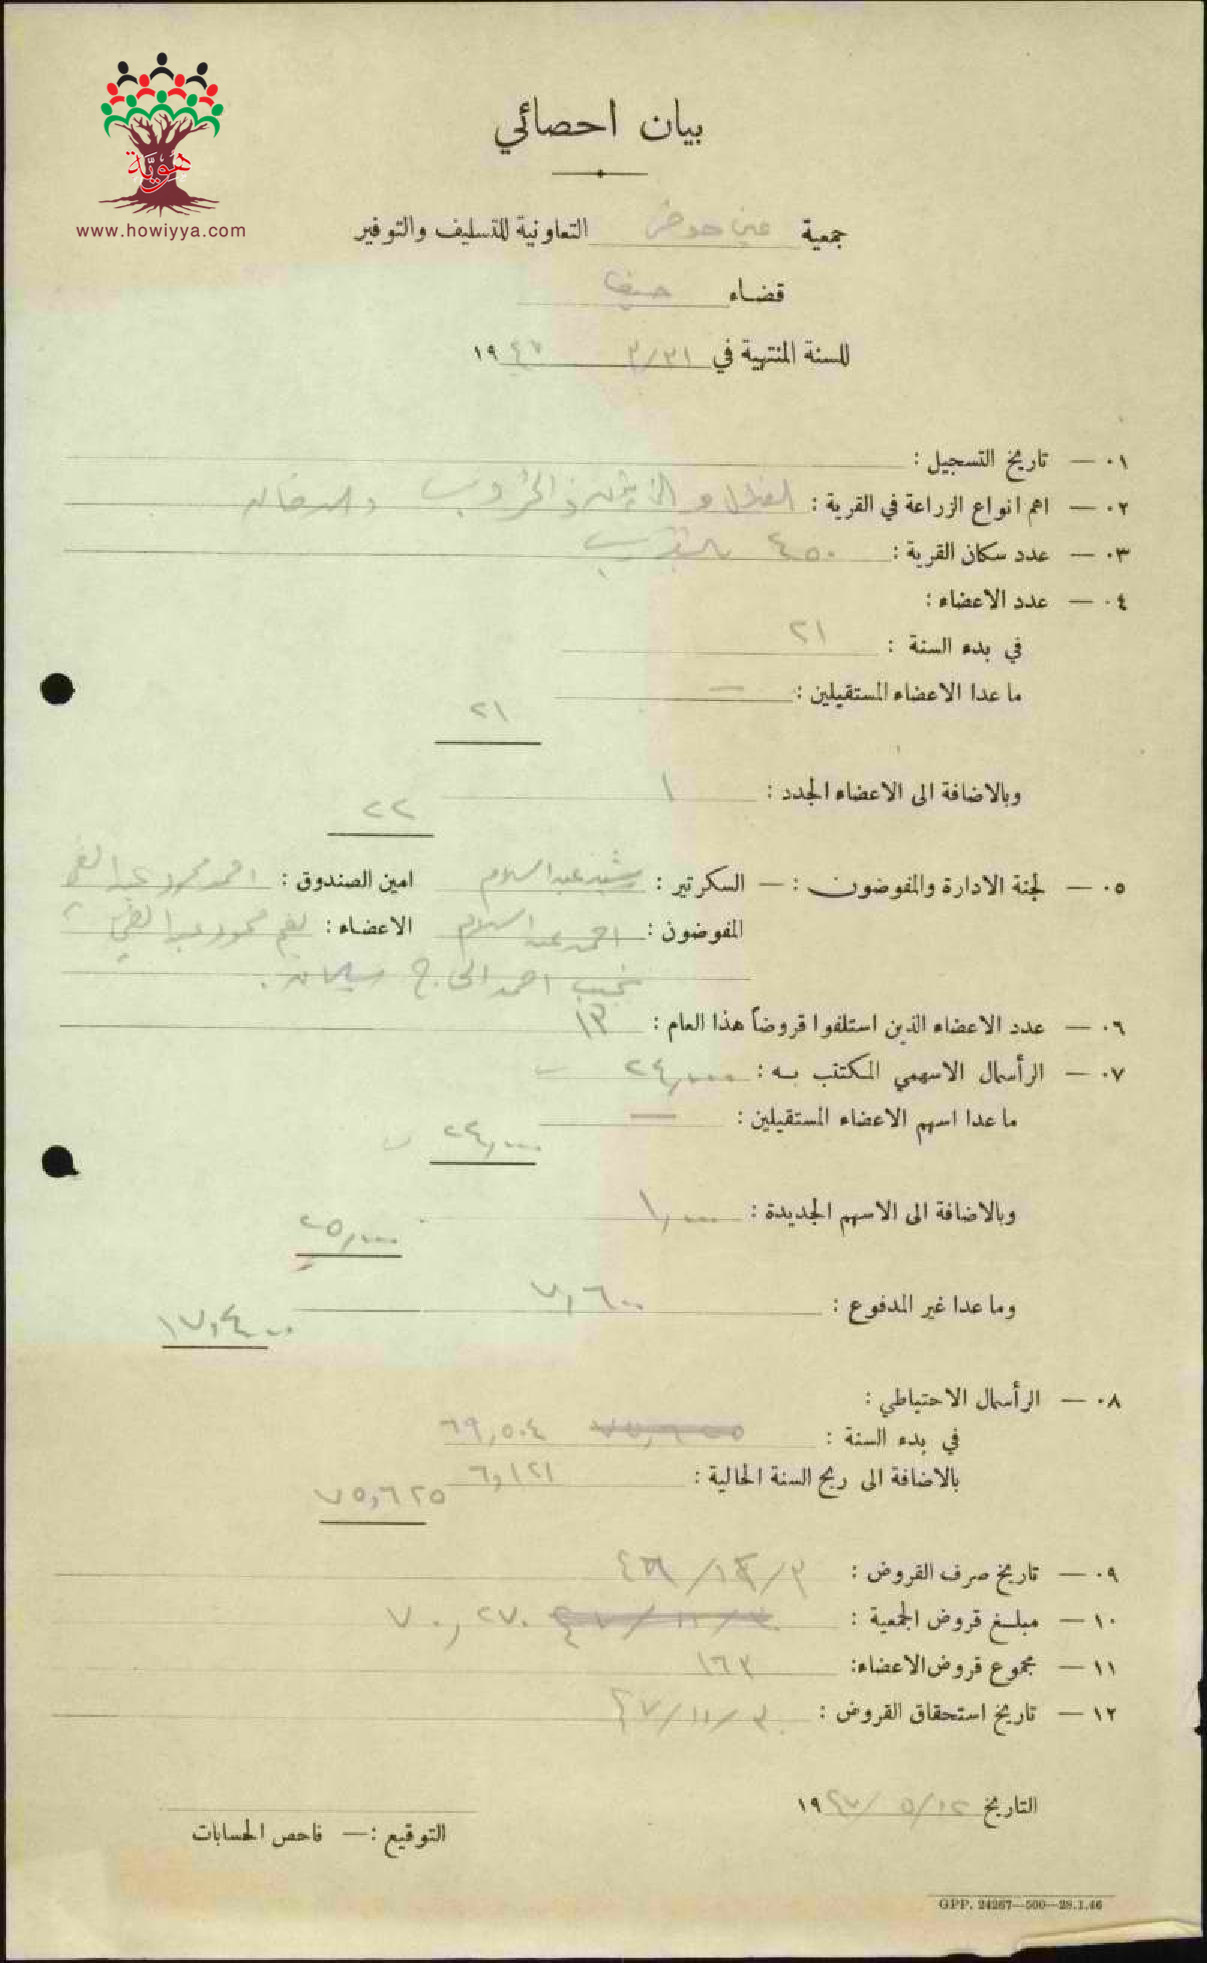 هوية
www.howiyya.com
بيان احصائي
جمعية عين حوض التعاونية للتسليف والتوفير
قضاء حيفا
للسنة المنتهية في ٣١/٣ ١٩٤٧
٠١ — تاريخ التسجيل :
٠٢ — اهم انواع الزراعة في القرية : الغلال و الزيتون والخروب والدخان
٠٣ — عدد سكان القرية : ٤٥٠ بالتقريب
٠٤ — عدد الاعضاء :
في بدء السنة : ٢١
ما عدا الاعضاء المستقيلين : —
٢١
وبالاضافة الى الاعضاء الجدد : ١
٢٢
٠٥ — لجنة الادارة والمفوضون : — السكرتير : رشيد عبد السلام امين الصندوق : احمد محمود عبد الغني
المفوضون : احمد عبد السلام الاعضاء : محمود عبد الغني
نجيب احمد الحاج سليمان .
٠٦ — عدد الاعضاء الذين استلفوا قروضاً هذا العام : ١٣
٠٧ — الرأسمال الاسهمي المكتتب به : ٢٤,٠٠٠
ما عدا اسهم الاعضاء المستقيلين : —
٢٤,٠٠٠
وبالاضافة الى الاسهم الجديدة : ١,٠٠٠
٢٥,٠٠٠
وما عدا غير المدفوع : ٧,٦٠٠
١٧,٤٠٠
٠٨ — الرأسمال الاحتياطي :
في بدء السنة : ٦٩,٥٠٤
بالاضافة الى ربح السنة الحالية : ٦,١٢١
٧٥,٦٢٥
٠٩ — تاريخ صرف القروض :
١٠ — مبلغ قروض الجمعية : ٧٠,٢٧٠
١١ — مجموع قروض الاعضاء: ١٦٣
١٢ — تاريخ استحقاق القروض : ٣٠/١١/٤٧
التاريخ ١٢/٥/١٩٤٧
التوقيع : — فاحص الحسابات
GPP. 24267—500—28.1.46